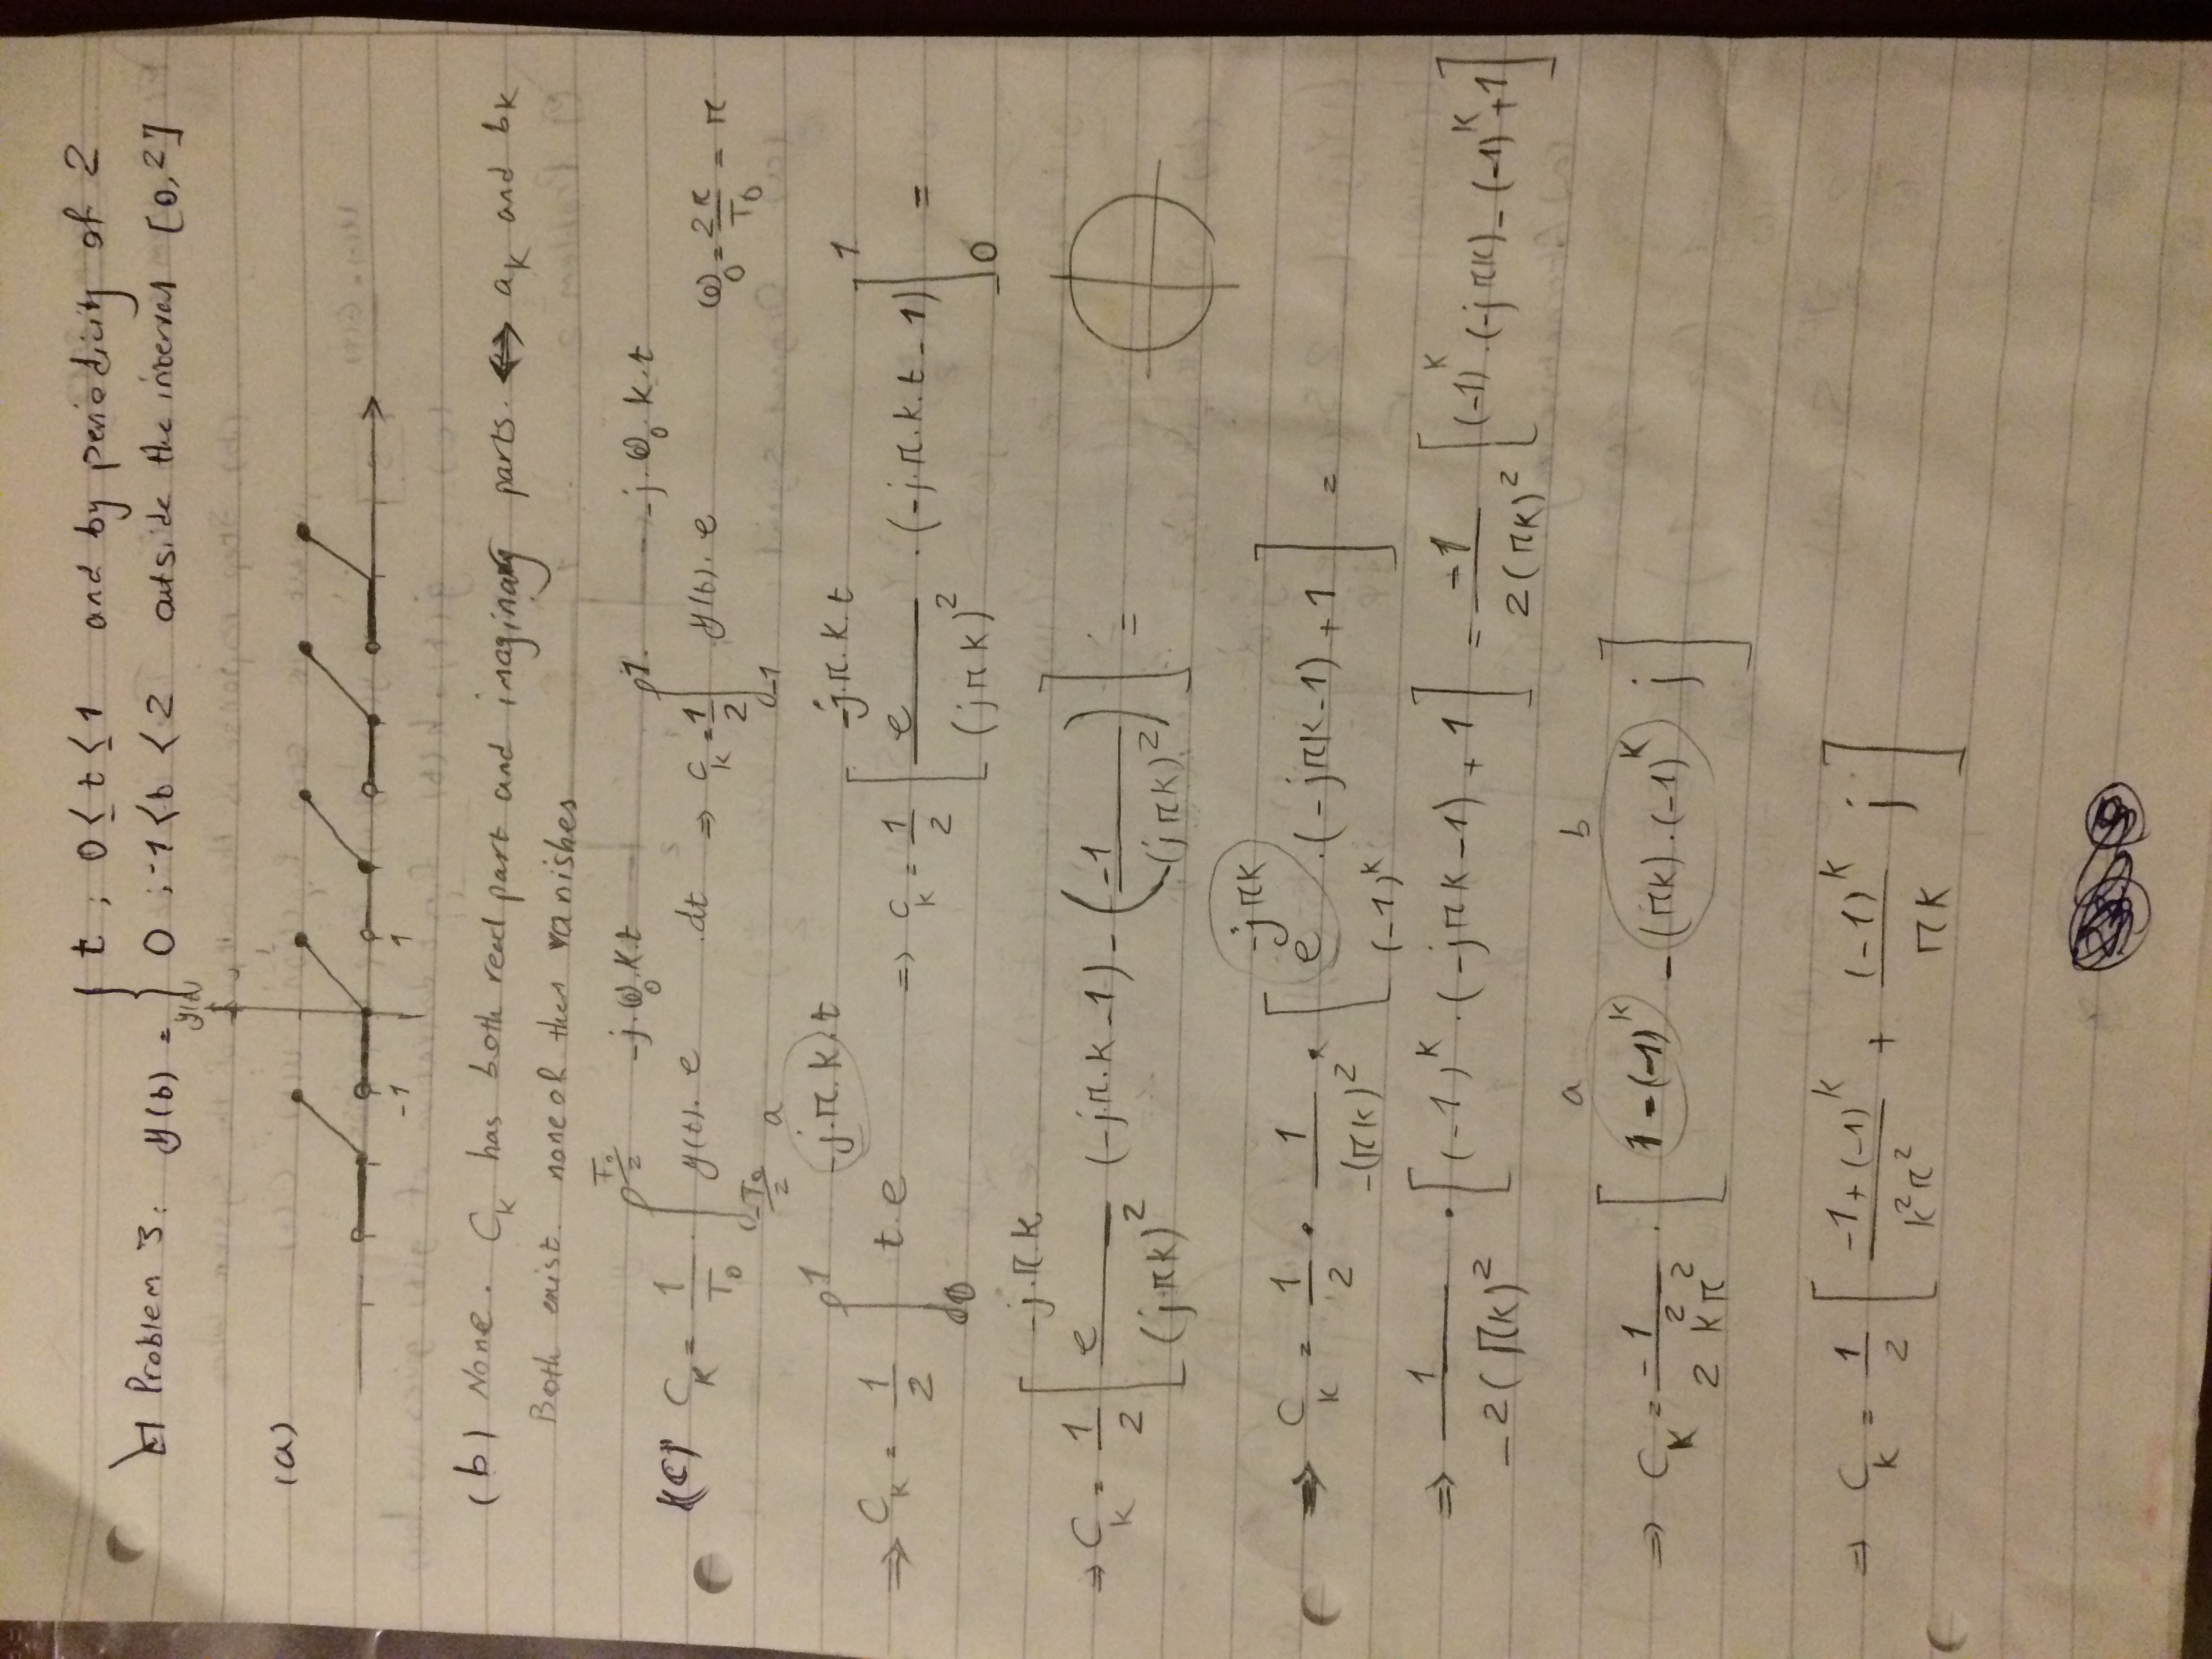 t ; 0 ≤ t ≤ 1 and by periodicity of 2
Problem 3: y(t) = { 0 ; -1 < t < 2 outside the interval [0,2]
y(t)
(a)
-1 1
(b) None. C_k has both real part and imaginary parts. ↔ a_k and b_k
Both exist. none of them vanishes
(c) C_k = 1/T_0 · ∫_{-T_0/2}^{T_0/2} y(t) · e^{-j·ω_0·k·t} · dt ⇒ C_k = 1/2 ∫_{-1}^{1} y(t) · e^{-j·ω_0·k·t} ω_0 = 2π/T_0 = π
a
⇒ C_k = 1/2 ∫_0^1 t · e^{-j·π·k·t} ⇒ C_k = 1/2 [ e^{-j·π·k·t}/(jπk)^2 · (-j·π·k·t - 1) ]_0^1 =
⇒ C_k = 1/2 [ e^{-j·π·k}/(jπk)^2 (-jπ·k - 1) - ( -1/(jπk)^2 ) ] =
⇒ C_k = 1/2 · 1/-(πk)^2 · [ e^{-jπk} · (-jπk-1) + 1 ] =
(-1)^k
⇒ 1/-2(πk)^2 · [ (-1)^k · (-jπk-1) + 1 ] = -1/2(πk)^2 [ (-1)^k · (-jπk) - (-1)^k + 1 ]
a b
⇒ C_k = -1/2k^2π^2 · [ 1-(-1)^k - (πk)·(-1)^k j ]
⇒ C_k = 1/2 [ -1+(-1)^k/k^2π^2 + (-1)^k/πk j ]